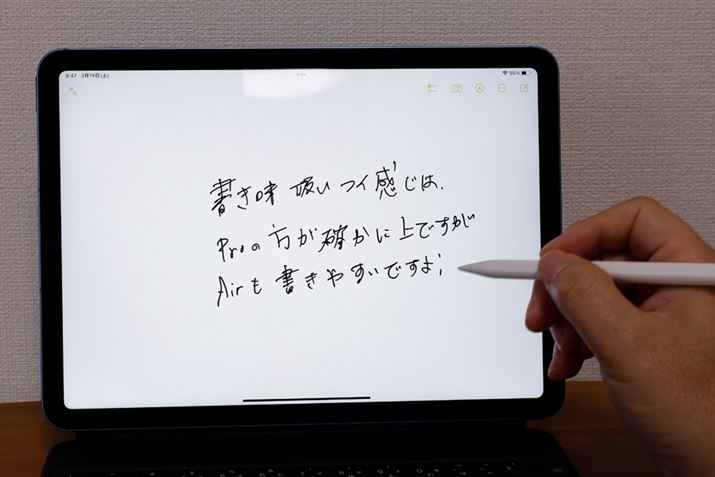 9:47 3月19日(土)
55%
書き味 吸いつく感じは、
Proの方が確かに上ですが
Airも書きやすいですよ!